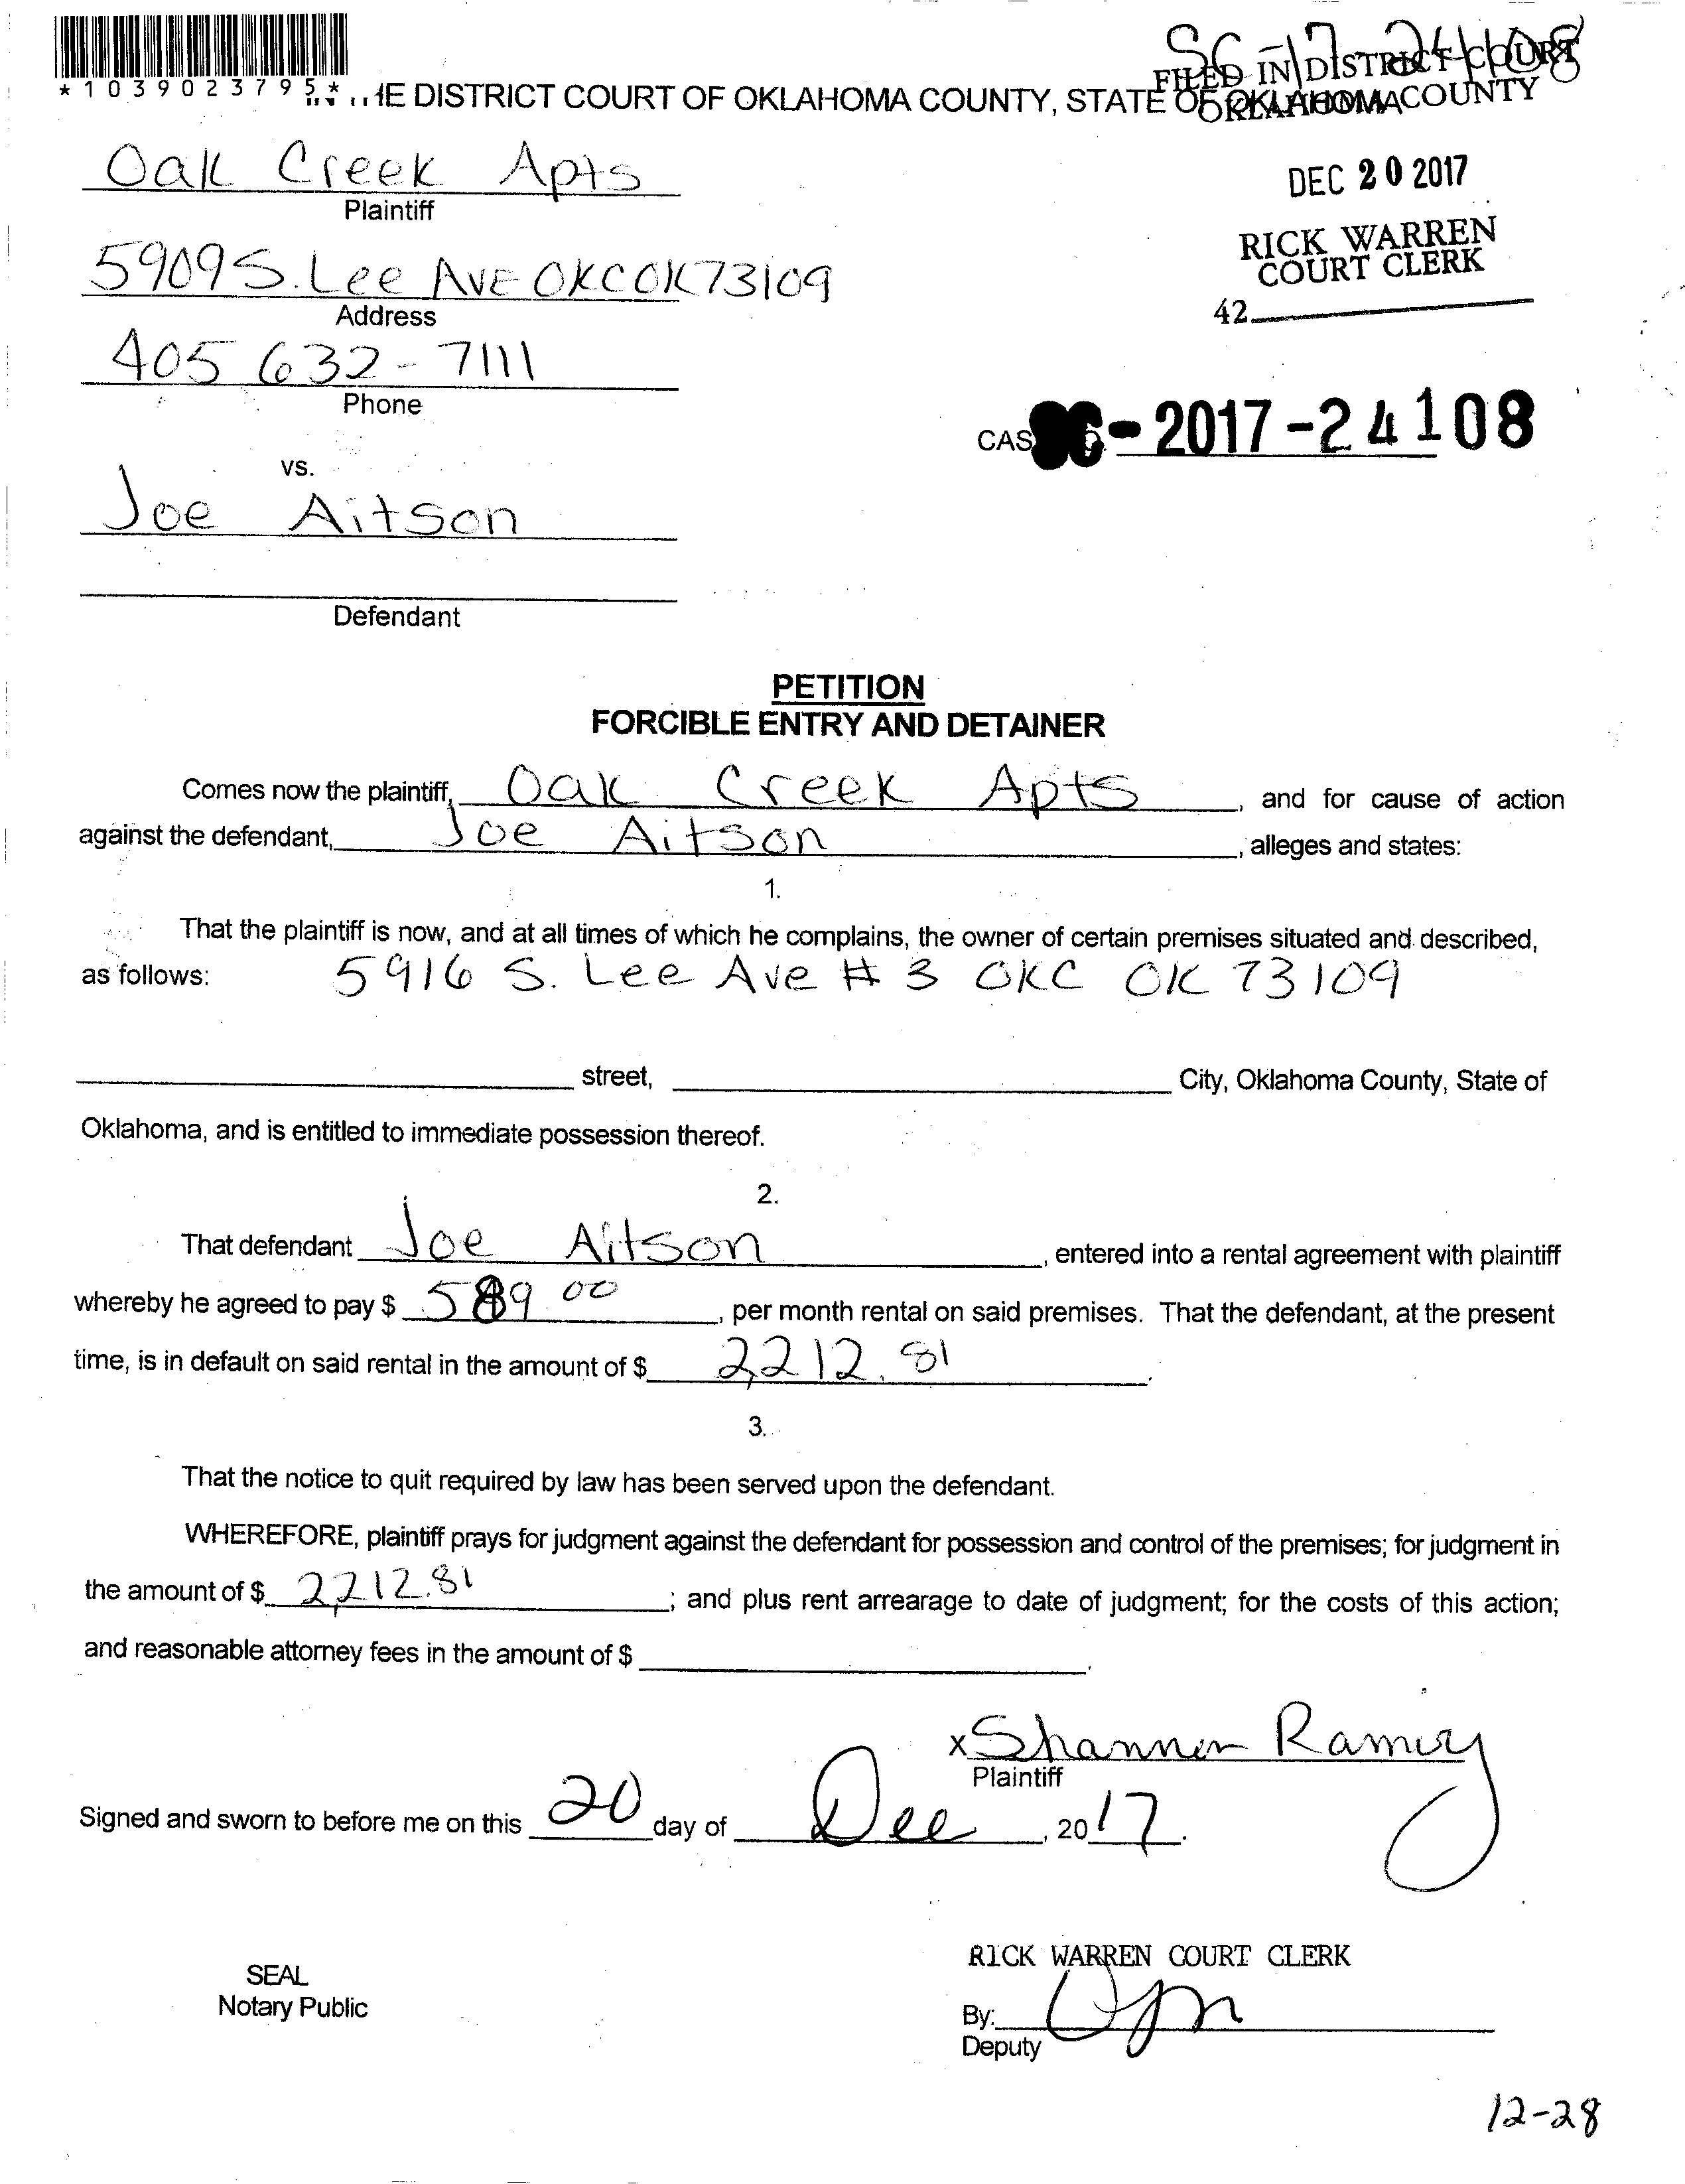 SC-17-24108
FILED IN DISTRICT COURT
OKLAHOMA COUNTY
*1039023795*
HE DISTRICT COURT OF OKLAHOMA COUNTY, STATE OF OKLAHOMA
DEC 20 2017
RICK WARREN
COURT CLERK
42
Oak Creek Apts
Plaintiff
5909 S. Lee AVE OKC OK 73109
Address
405 632-7111
Phone
CAS SC-2017-24108
vs.
Joe Aitson
Defendant
PETITION
FORCIBLE ENTRY AND DETAINER
Comes now the plaintiff, Oak Creek Apts, and for cause of action
against the defendant, Joe Aitson, alleges and states:
1.
That the plaintiff is now, and at all times of which he complains, the owner of certain premises situated and described,
as follows: 5916 S. Lee Ave # 3 OKC OK 73109
street, City, Oklahoma County, State of
Oklahoma, and is entitled to immediate possession thereof.
2.
That defendant Joe Aitson, entered into a rental agreement with plaintiff
whereby he agreed to pay $ 589 00, per month rental on said premises. That the defendant, at the present
time, is in default on said rental in the amount of $ 2,212.81.
3.
That the notice to quit required by law has been served upon the defendant.
WHEREFORE, plaintiff prays for judgment against the defendant for possession and control of the premises; for judgment in
the amount of $ 2,212.81; and plus rent arrearage to date of judgment; for the costs of this action;
and reasonable attorney fees in the amount of $ .
x Shannon Ramey
Plaintiff
Signed and sworn to before me on this 20 day of Dec, 2017.
RICK WARREN COURT CLERK
SEAL
Notary Public
By:
Deputy
12-28